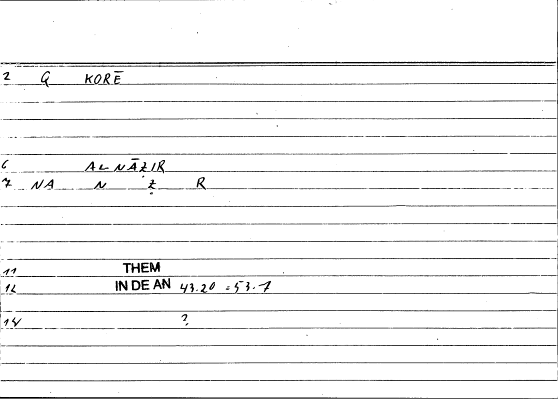 2 G KORĒ
6 AL NĀẒIR
7 NA N Ẓ R
11 THEM
12 IN DE AN 43.20 = 53.7
14 ?